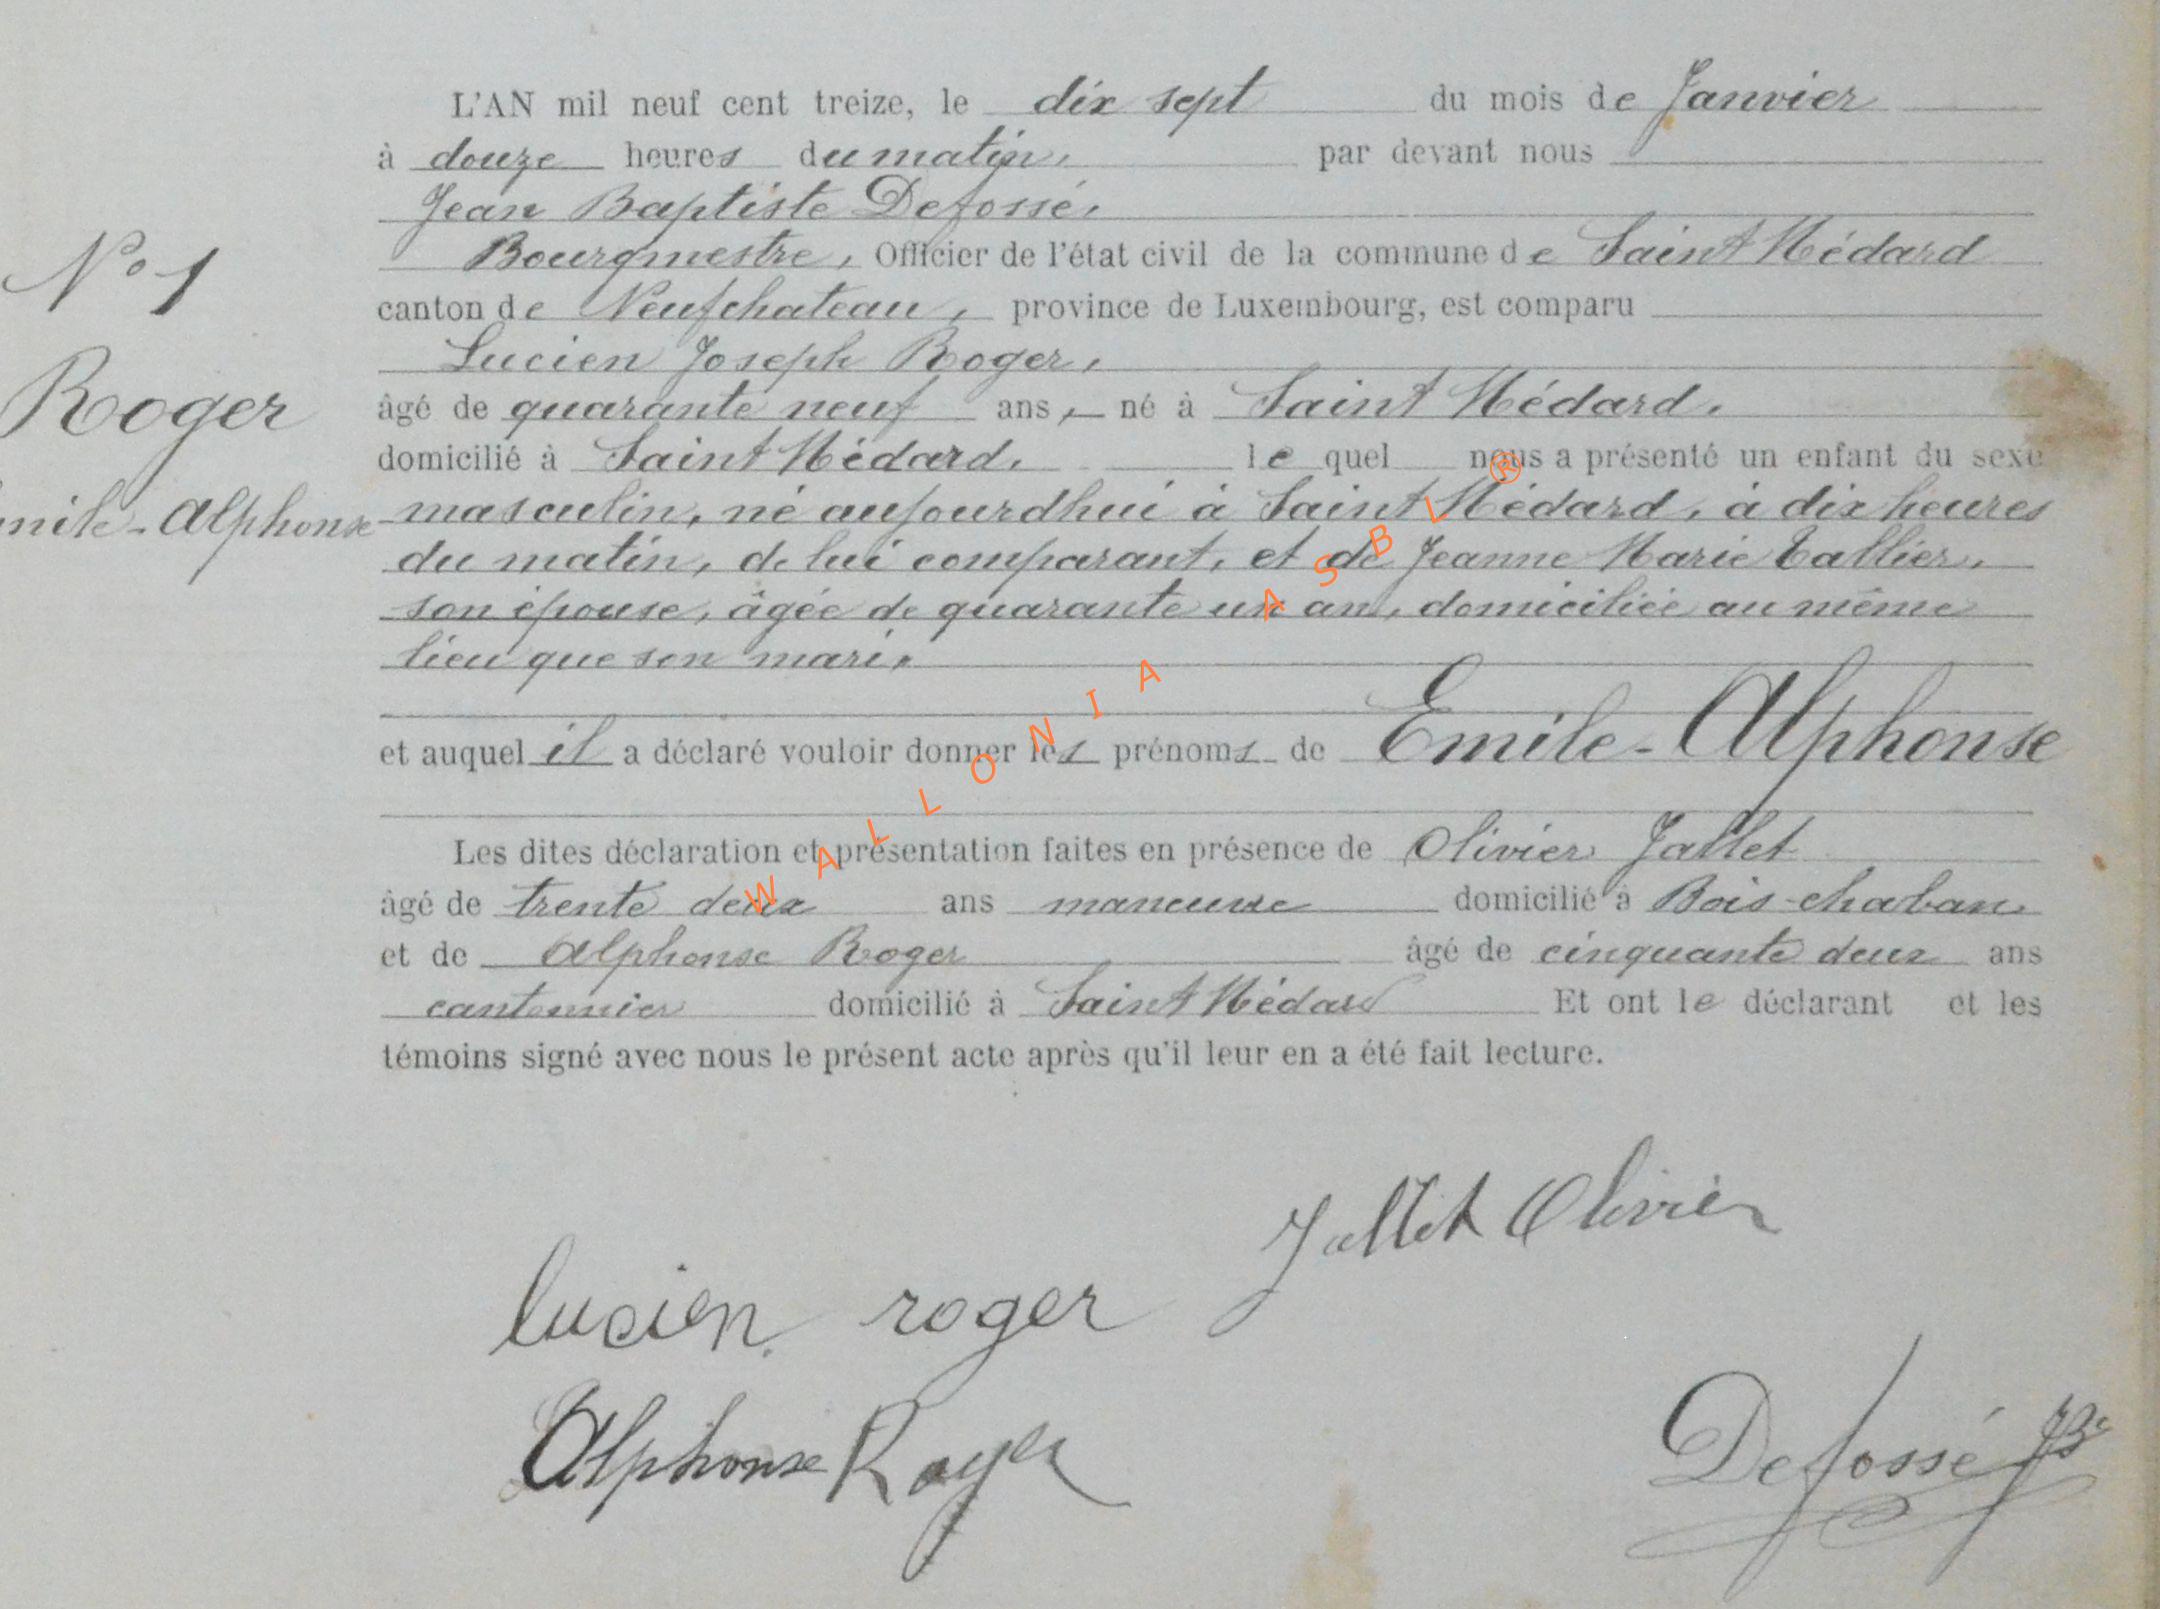 L'AN mil neuf cent treize, le dix sept du mois de Janvier
à douze heures du matin, par devant nous
Jean Baptiste Defossé,
Bourgmestre, Officier de l'état civil de la commune de Saint Médard
N° 1
canton de Neufchateau, province de Luxembourg, est comparu
Lucien Joseph Roger,
Roger
âgé de quarante neuf ans, né à Saint Médard,
domicilié à Saint Médard, le quel nous a présenté un enfant du sexe
mile-Alphonse
masculin, né aujourdhui à Saint Médard, à dix heures
du matin, de lui comparant, et de Jeanne Marie Tallier,
son épouse, âgée de quarante un an, domiciliée au même
lieu que son mari.
et auquel il a déclaré vouloir donner les prénoms de Emile-Alphonse
Les dites déclaration et présentation faites en présence de Olivier Jallet
âgé de trente deux ans domicilié à Bois-chaban
et de Alphonse Roger âgé de cinquante deux ans
cantonnier domicilié à Saint Médard Et ont le déclarant et les
témoins signé avec nous le présent acte après qu'il leur en a été fait lecture.
Jallet Olivier
lucien roger
Alphonse Roger
Defossé JB
WALLONIA ASBL ®